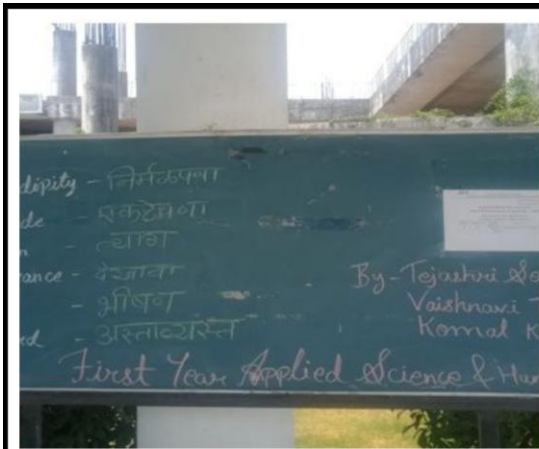 dipity - निर्मळपणा
de - एकटेपणा
n - त्याग
ance - देखावा
- भीषण
ed - अस्ताव्यस्त
By - Tejashri So
Vaishnavi T
Komal K
First Year Applied Science & Hum